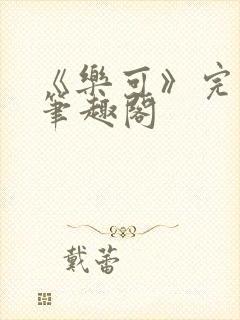 《樂可》完
筆趣閣
戴蕾